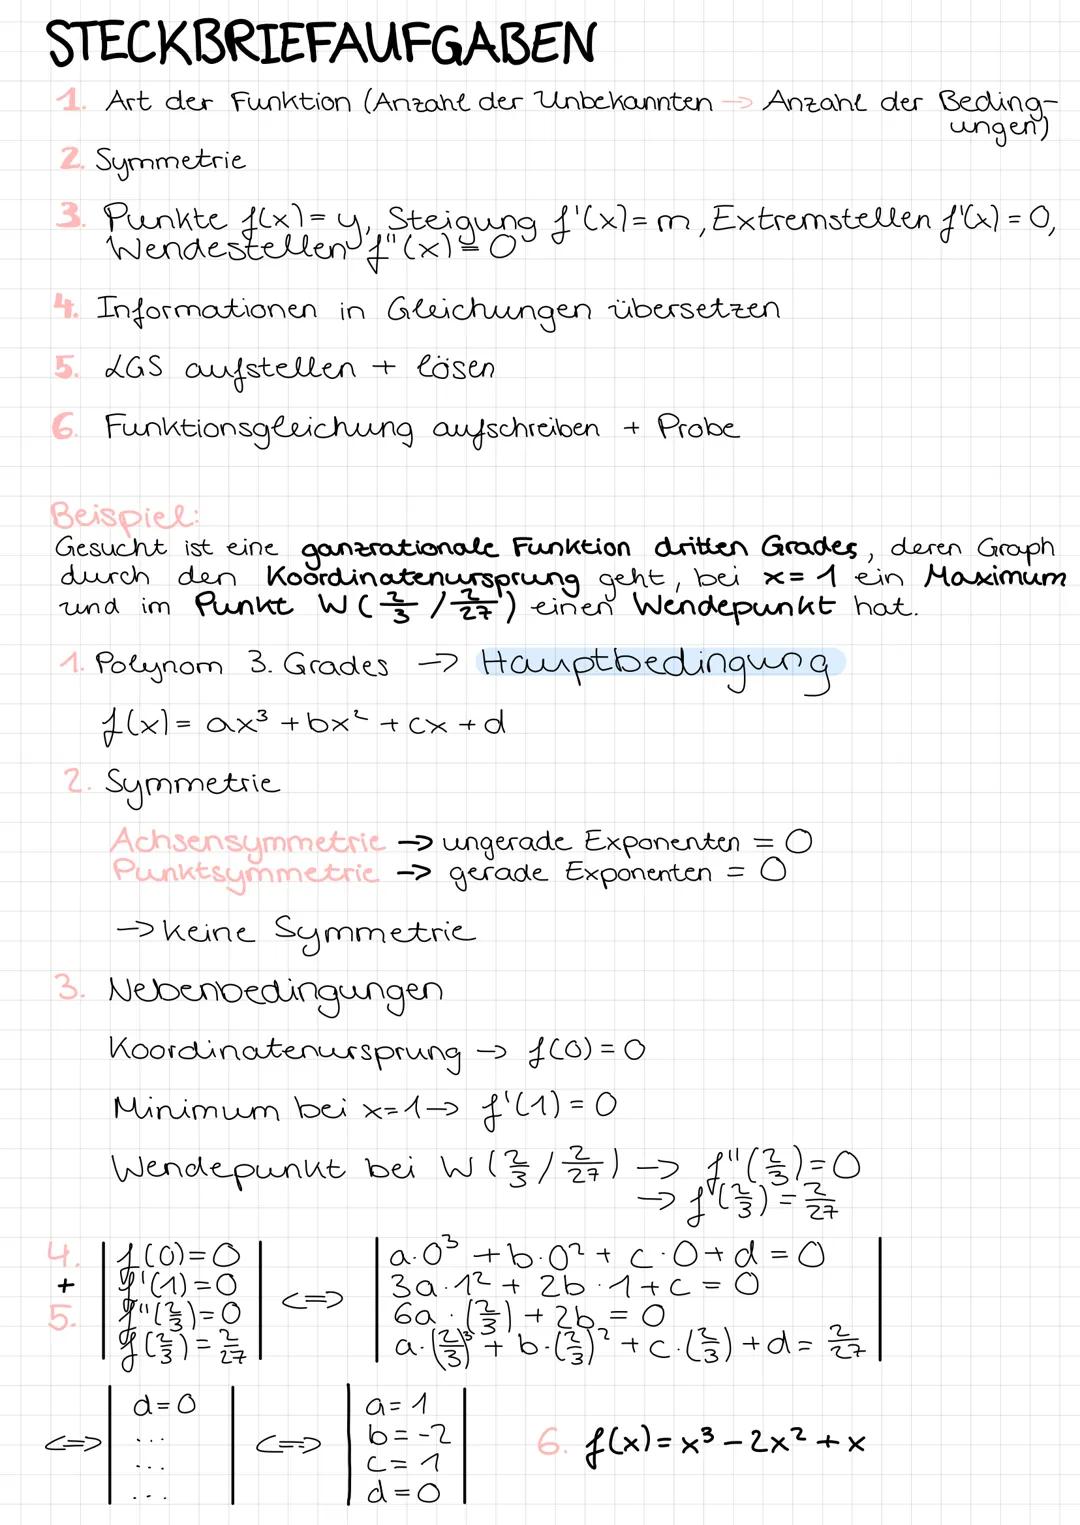 STECKBRIEFAUFGABEN
1. Art der Funktion (Anzahl der Unbekannten → Anzahl der Beding-
ungen)
2. Symmetrie
3. Punkte f(x) = y, Steigung f'(x) = m, Extremstellen f'(x) = 0,
Wendestellen f''(x) = 0
4. Informationen in Gleichungen übersetzen
5. LGS aufstellen + lösen
6. Funktionsgleichung aufschreiben + Probe
Beispiel:
Gesucht ist eine ganzrationale Funktion dritten Grades, deren Graph
durch den Koordinatenursprung geht, bei x = 1 ein Maximum
und im Punkt W (2/3 / 2/27) einen Wendepunkt hat.
1. Polynom 3. Grades → Hauptbedingung
f(x) = ax³ + bx² + cx + d
2. Symmetrie
Achsensymmetrie → ungerade Exponenten = 0
Punktsymmetrie → gerade Exponenten = 0
→ keine Symmetrie
3. Nebenbedingungen
Koordinatenursprung → f(0) = 0
Minimum bei x=1 → f'(1) = 0
Wendepunkt bei W (2/3 / 2/27) → f''(2/3) = 0
→ f(2/3) = 2/27
4. | f(0) = 0 | | a·0³ + b·0² + c·0 + d = 0 |
+ | f'(1) = 0 | <=> | 3a·1² + 2b·1 + c = 0 |
5. | f''(2/3) = 0 | | 6a·(2/3) + 2b = 0 |
| f(2/3) = 2/27 | | a·(2/3)³ + b·(2/3)² + c·(2/3) + d = 2/27 |
| d = 0 | | a = 1 |
<=> | ... | <=> | b = -2 | 6. f(x) = x³ - 2x² + x
| ... | | c = 1 |
| ... | | d = 0 |